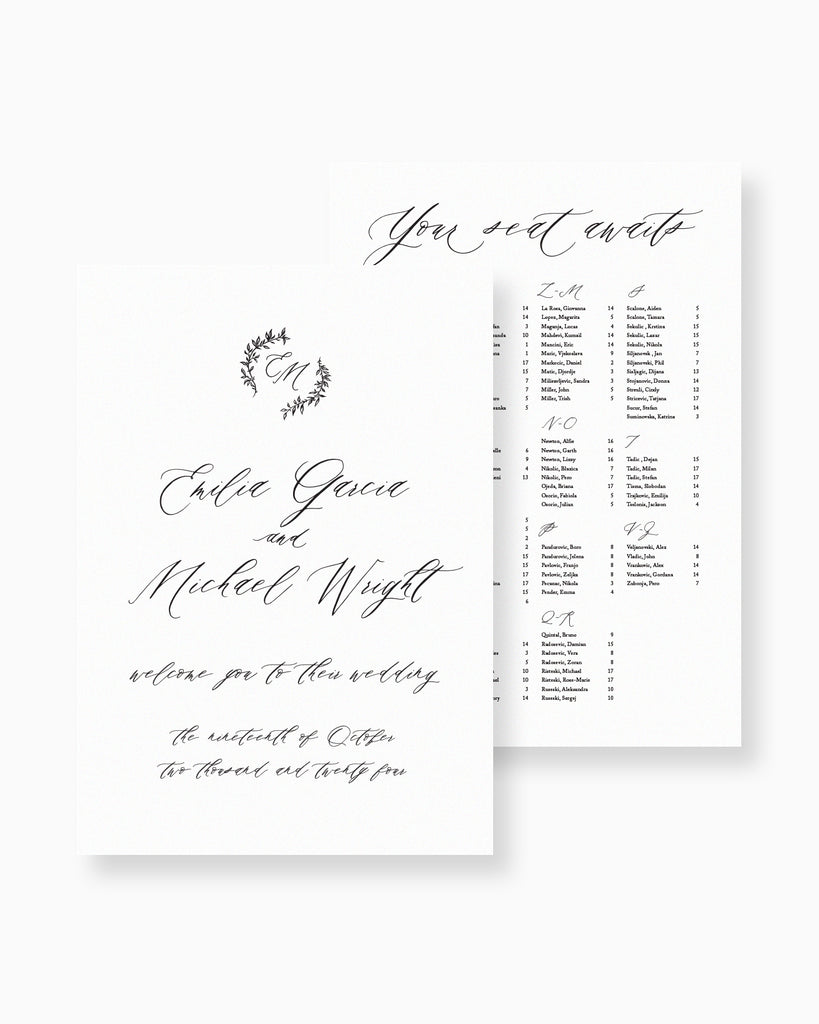 Your seat awaits
EM
Emilia Garcia
and
Michael Wright
welcome you to their wedding
the nineteenth of October
two thousand and twenty four
14
14
3
10
1
1
17
15
7
7
5
5
6
9
4
13
5
5
2
2
15
15
17
17
15
6
14
3
5
10
10
3
14
L-M
La Rosa, Giovanna 14
Lopez, Magarita 5
Maganja, Lucas 4
Mahdevi, Kumail 14
Mancini, Eric 14
Maric, Vjekoslava 9
Markovic, Daniel 2
Matic, Djordje 3
Milisavljevic, Sandra 3
Miller, John 5
Miller, Trish 5
N-O
Newton, Alfie 16
Newton, Garth 16
Newton, Lizzy 16
Nikolic, Blazica 7
Nikolic, Pero 7
Ojeda, Briana 17
Osorio, Fabiola 5
Osorio, Julian 5
P
Pandurovic, Boro 8
Pandurovic, Jelena 8
Pavlovic, Franjo 8
Pavlovic, Zeljka 8
Pecanac, Nikola 3
Pender, Emma 4
Q-R
Quintal, Bruno 9
Radosevic, Damian 15
Radosevic, Vera 8
Radosevic, Zoran 8
Risteski, Michael 17
Risteski, Rose-Marie 17
Ruesski, Aleksandra 10
Ruesski, Sergej 10
S
Scalone, Aiden 5
Scalone, Tamara 5
Sekulic , Krstina 15
Sekulic, Lazar 15
Sekulic, Nikola 15
Siljanovek , Jan 7
Siljanovski, Phil 7
Sialjagic, Dijana 13
Stojanovic, Donna 14
Strenli, Cindy 12
Stricevic, Tatjana 17
Sucur, Stefan 14
Suminovska, Katrina 3
T
Tadic , Dejan 15
Tadic, Milan 17
Tadic, Stefan 17
Tisma, Slobodan 14
Trajkovic, Emilija 10
Tesloniz, Jackson 4
V-Z
Veljanovski, Alex 14
Vladic, John 8
Vrankovic, Alex 14
Vrankovic, Gordana 14
Zabonja, Pero 7